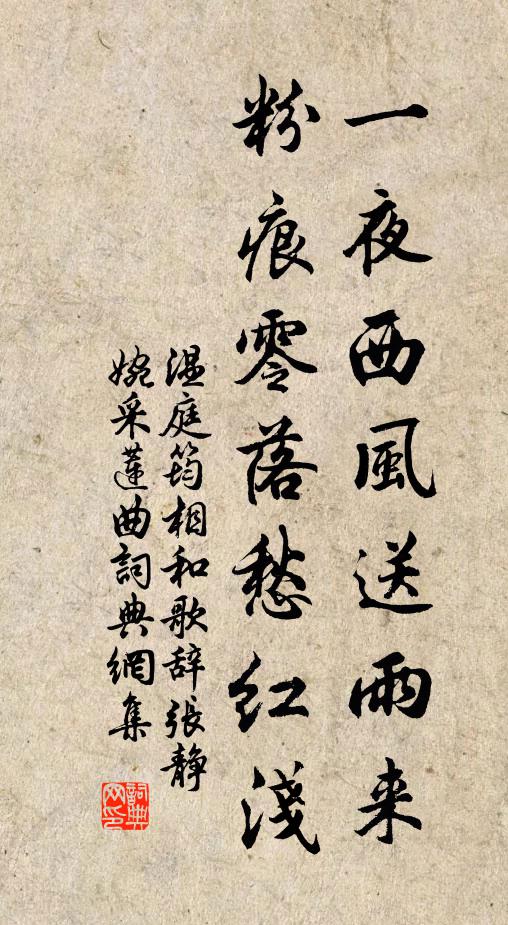 一夜西風送雨来
粉痕零落愁红淺
温庭筠相和歌辞張静
婉采蓮曲詞典網集
詞典网印